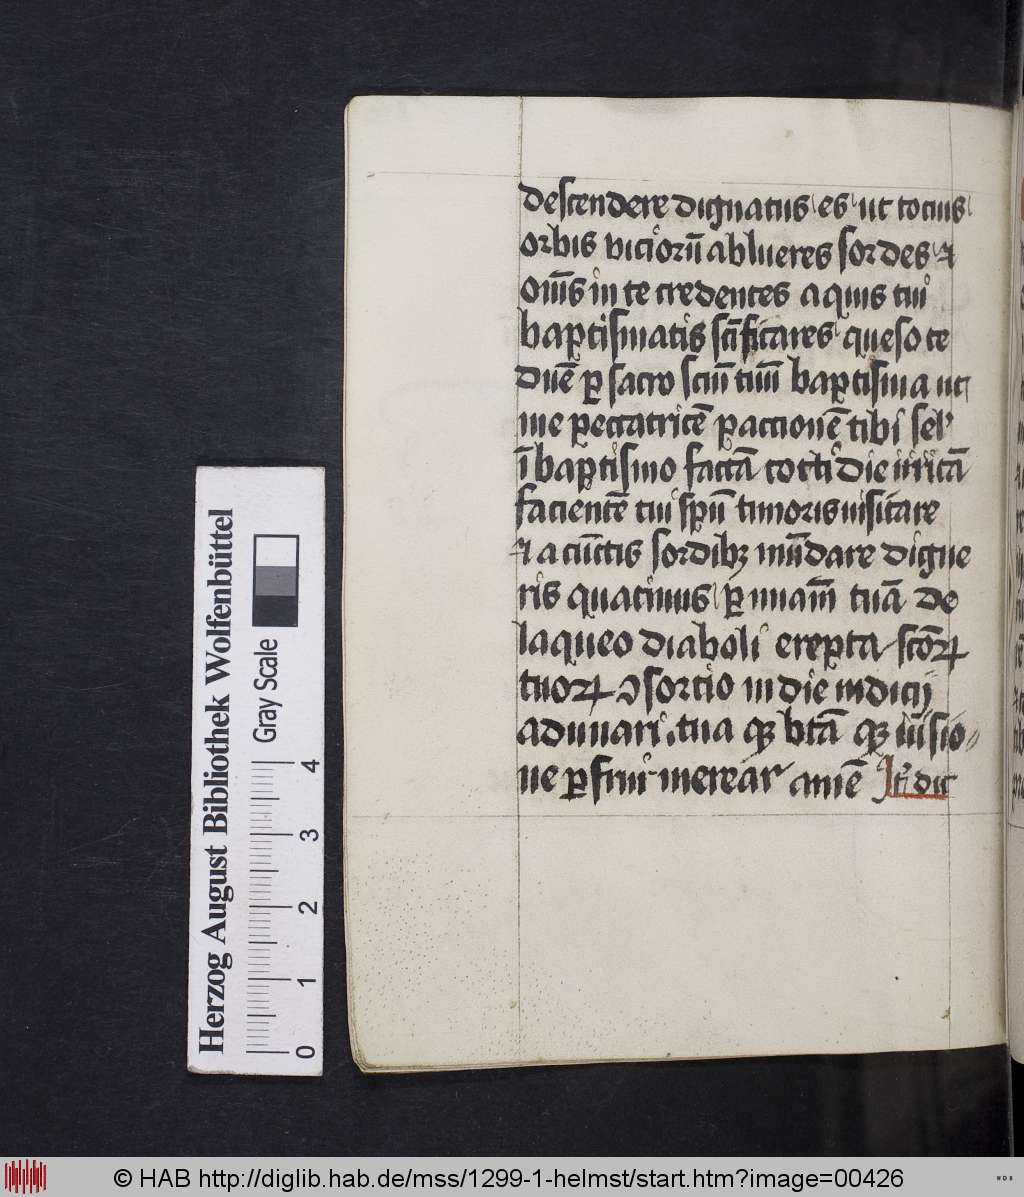 descendere dignatus es ut tocius
orbis vicioru̅ ablueres sordes ⁊
om̅s in te credentes aquis tui
baptismatis sc̅ificares queso te
dn̅e ꝑ sacro sc̅m tuu̅ baptisma ut
me peccatrice̅ pactione̅ tibi
i̅ baptismo facta̅ cottidie irrita̅
faciente̅ tui sp̅u̅ timoris uisitare
⁊ a cu̅ctis sordibꝫ mu̅dare digne
ris quatinus ꝑ tua̅ de
laqueo diaboli erepta sc̅oꝝ
tuoꝝ ꝯsorcio in die iudicij
adunari tua bt̅a iussio
ne ꝑfrui merear ame̅ It̅ dic
Herzog August Bibliothek Wolfenbüttel
Gray Scale
0 1 2 3 4
© HAB http://diglib.hab.de/mss/1299-1-helmst/start.htm?image=00426